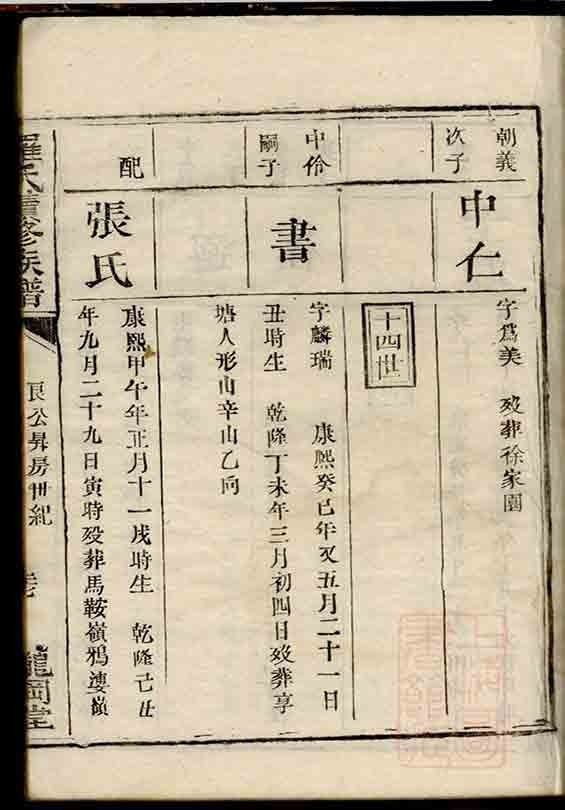 朝義
次子
中仁
字爲美　歿葬徐家園
十四世
中伶
嗣子
書
字麟瑞　康熙癸巳年又五月二十一日
丑時生　乾隆丁未年三月初四日歿葬享
塘人形山辛山乙向
配
張氏
康熙甲午年正月十一戌時生　乾隆己丑
年九月二十九日寅時歿葬馬鞍嶺鴉㜢嶺
羅氏續修族譜
良公昇房世紀
龍岡堂